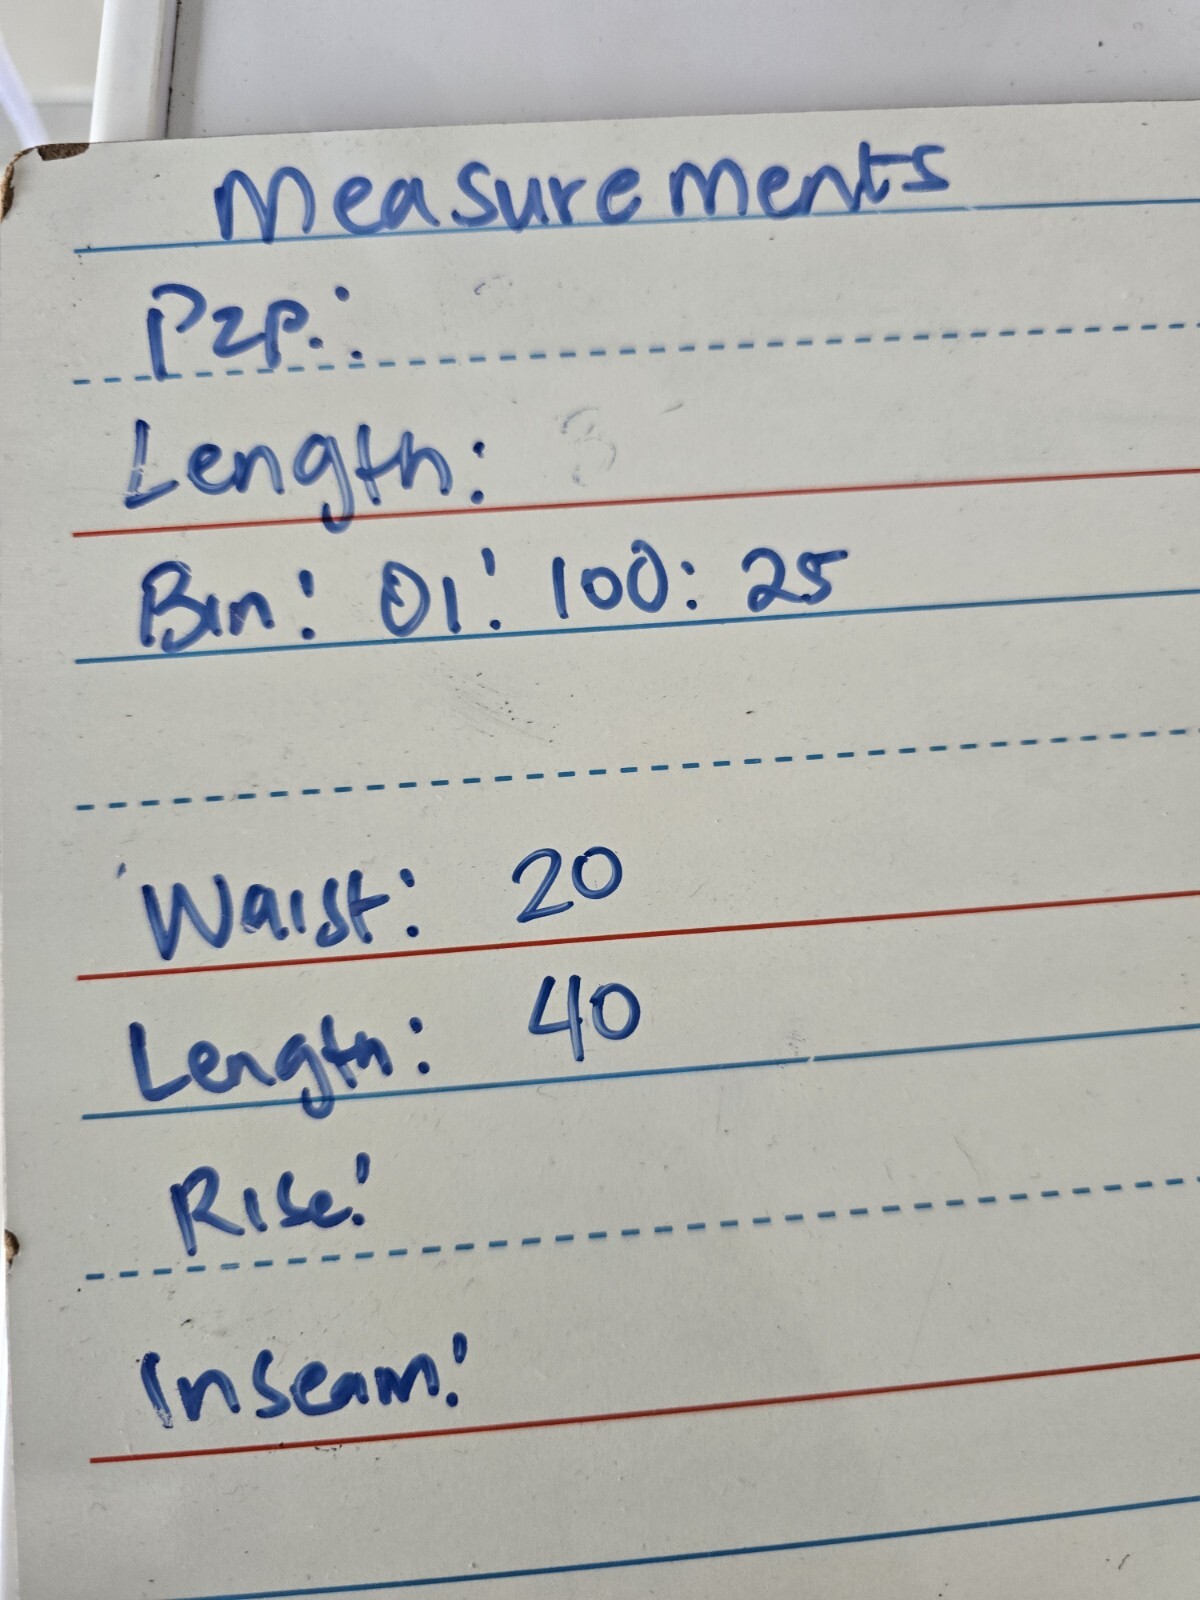 Measurements
P2P.:
Length:
Bin: 01: 100: 25
Waist: 20
Length: 40
Rise:
Inseam: